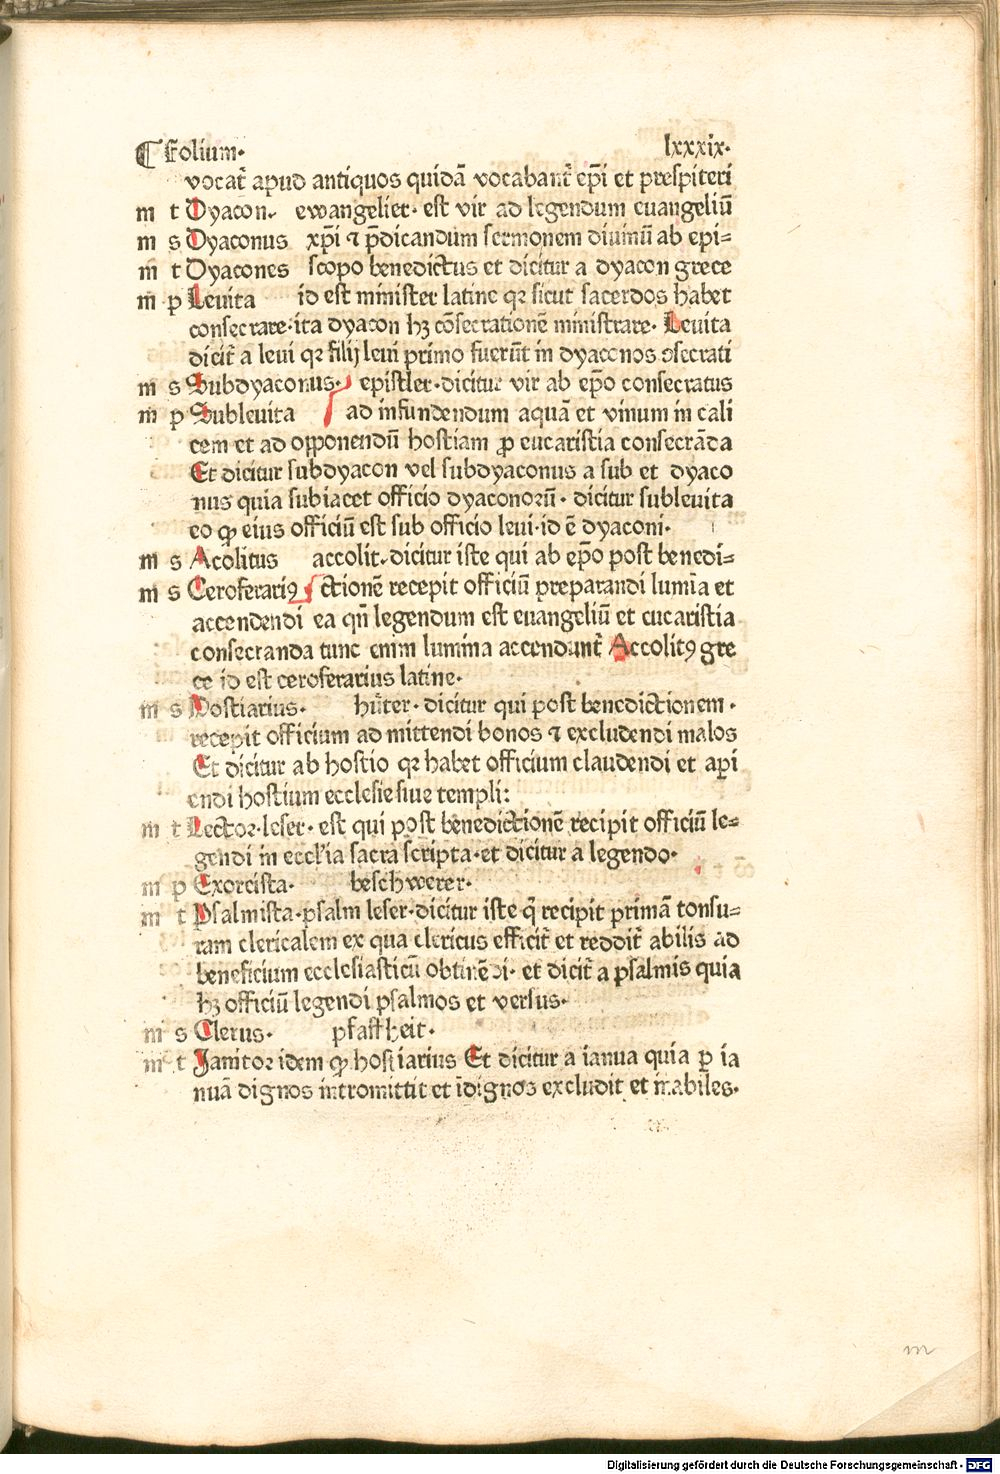 Folium. lxxxix.
vocat᷑ apud antiquos quidā vocabant᷑ ep̄i et prespiteri
m t Dyacon. ewangelier. est vir ad legendum euangeliū
m s Dyaconus xp̄i ⁊ p̄dicandum sermonem diuinū ab epi=
m t Dyacones scopo benedictus et dicitur a dyacon grece
m p Leuita id est minister latine qꝛ sicut sacerdos habet
consecrare. ita dyacon hꝫ cōsecrationē ministrare. Leuita
dicit᷑ a leui qꝛ filij leui primo fuerūt in dyaconos ꝯsecrati
m s Subdyaconus. epistler. dicitur vir ab ep̄o consecratus
m p Subleuita ad infundendum aquā et vinum in cali
cem et ad opponendū hostiam ꝓ eucaristia consecrāda
Et dicitur subdyacon vel subdyaconus a sub et dyaco
nus quia subiacet officio dyaconorū. dicitur subleuita
eo ꝙ eius officiū est sub officio leui. id ē dyaconi.
m s Acolitus accolit. dicitur iste qui ab ep̄o post benedi=
m s Ceroferariꝰ ctionē recepit officiū preparandi lumīa et
accendendi ea qn̄ legendum est euangeliū et eucaristia
consecranda tunc enim lumina accendunt᷑ Accolitꝰ gre
ce id est ceroferarius latine.
m s Hostiarius. hüter. dicitur qui post benedictionem.
recepit officium ad mittendi bonos ⁊ excludendi malos
Et dicitur ab hostio qꝛ habet officium claudendi et api
endi hostium ecclesie siue templi:
m t Lector. leser. est qui post benedictionē recipit officiū le=
gendi in eccl'ia sacra scripta. et dicitur a legendo.
m p Exorcista. beschwerer.
m t Psalmista. psalm leser. dicitur iste q̄ recipit primā tonsu=
ram clericalem ex qua clericus efficit᷑ et reddit᷑ abilis ad
beneficium ecclesiasticū obtinēdi. et dicit᷑ a psalmis quia
hꝫ officiū legendi psalmos et versus.
m s Clerus. pfaffheit.
m t Janitor idem ꝙ hostiarius Et dicitur a ianua quia ꝑ ia
nuā dignos intromittit et īdignos excludit et inabiles.
m
Digitalisierung gefördert durch die Deutsche Forschungsgemeinschaft - DFG